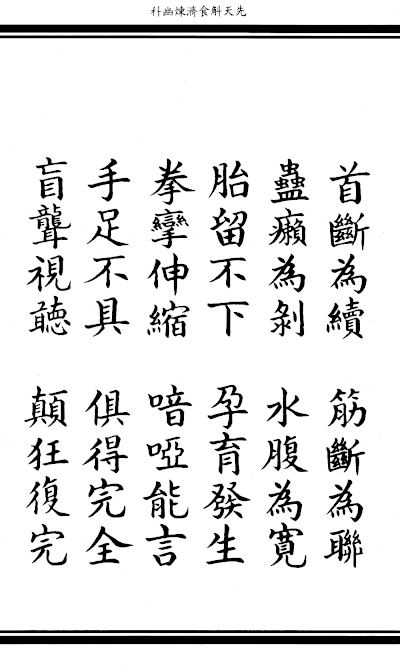 先天斛食濟煉幽科
首斷為續　筋斷為聯
蠱癩為剝　水腹為寬
胎留不下　孕育發生
拳攣伸縮　喑啞能言
手足不具　俱得完全
盲聾視聽　顛狂復完